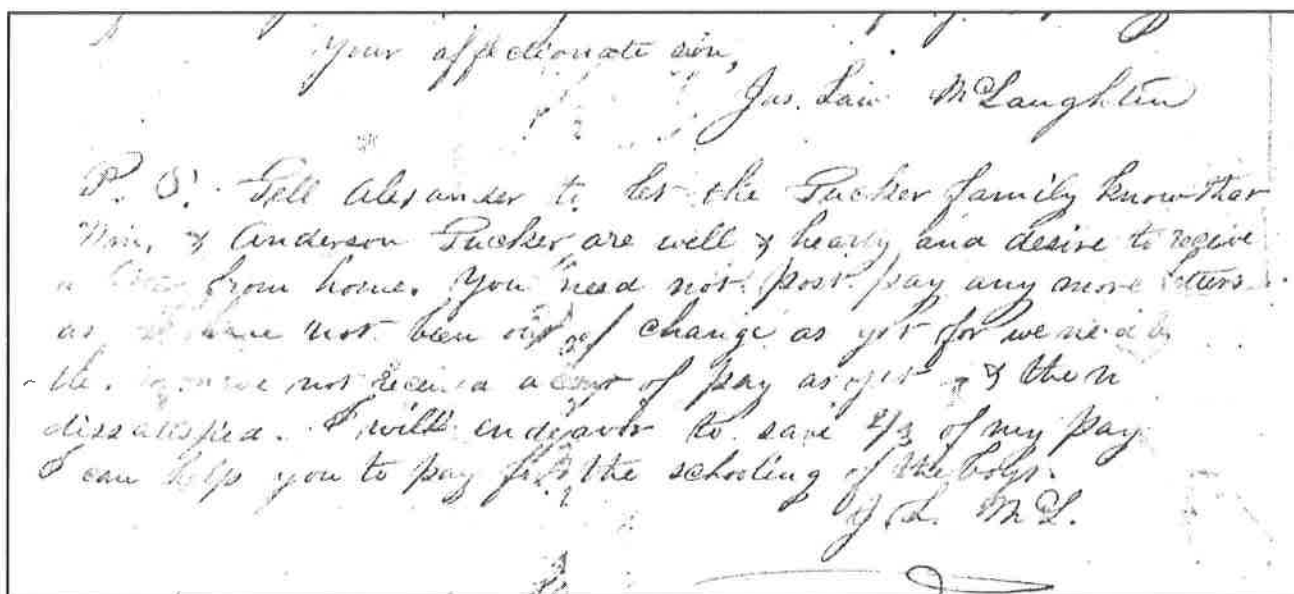 Your affectionate son,
Jas. Law McLaughlin
P. S. Tell Alexander to let the Tucker family know that
Wm. & Anderson Tucker are well & hearty and desire to receive
a from home. You need not post pay any more letters
as have not been out of change as yet for we
the not a cent of pay as yet & the
dissatisfied. I will endeavor to save 2/3 of my pay
I can help you to pay for the schooling of the boys.
J. L. McL.